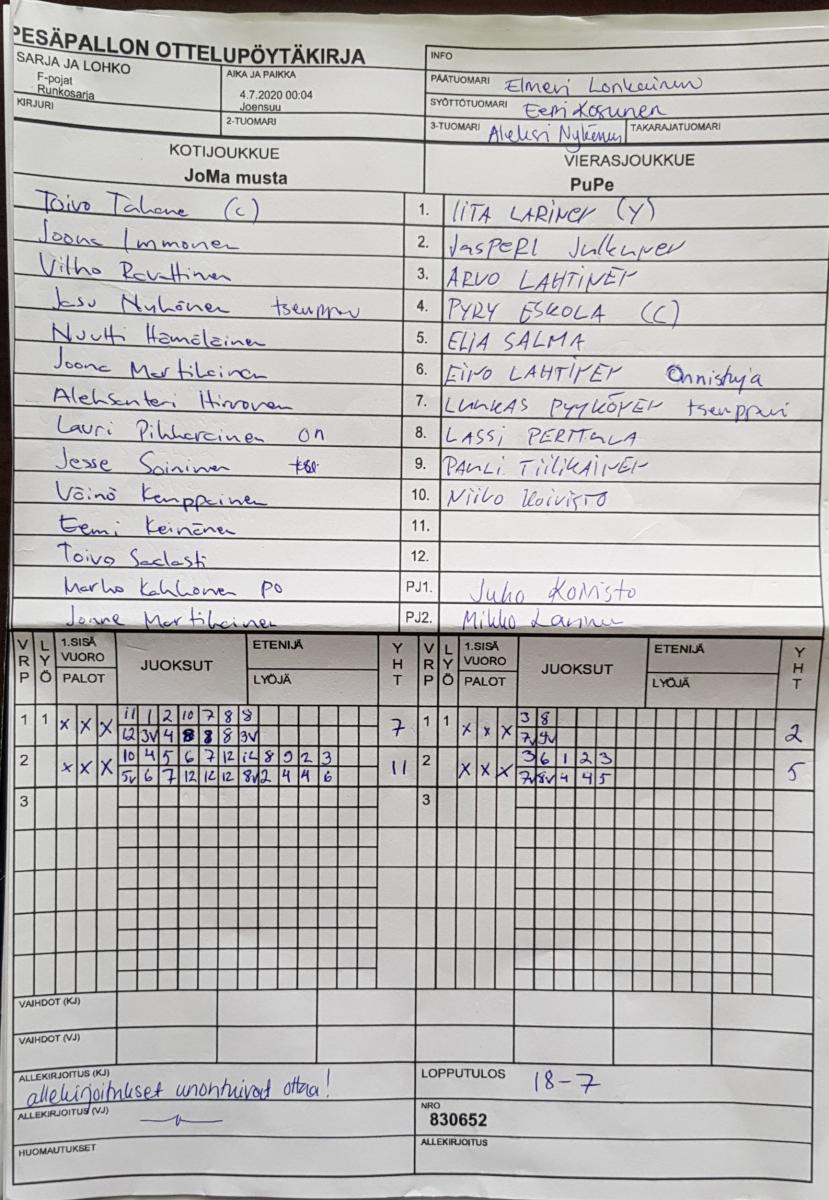 PESÄPALLON OTTELUPÖYTÄKIRJA
SARJA JA LOHKO
F-pojat
Runkosarja
KIRJURI
AIKA JA PAIKKA
4.7.2020 00:04
Joensuu
2-TUOMARI
INFO
PÄÄTUOMARI Elmeri
SYÖTTÖTUOMARI Eemi Kosunen
3-TUOMARI Aleksi Nykänen TAKARAJATUOMARI
KOTIJOUKKUE VIERASJOUKKUE
JoMa musta PuPe
Toivo (c) 1. IITA LARINEN (Y)
Joona Immonen 2. JASPERI Julkunen
Vilho 3. ARVO LAHTINEN
Nykänen tsemppari 4. PYRY ESKOLA (C)
Nuutti Hämäläinen 5. ELIA SALMA
Joona Martikainen 6. EINO LAHTINEN Onnistuja
Aleksanteri Hirvonen 7. LUUKAS PYYKÖNEN tsemppari
Lauri Pikkarainen on 8. LASSI PERTTULA
Jesse Soininen 9. PAULI TIILIKAINEN
Väinö Kemppainen 10. Niilo Koivisto
Eemi Keinänen 11.
Toivo 12.
Marko Kahkonen PO PJ1. Juho Koivisto
Janne Martikainen PJ2. Mikko
VRP LYÖ 1.SISÄ VUORO PALOT JUOKSUT ETENIJÄ LYÖJÄ YHT VRP LYÖ 1.SISÄ VUORO PALOT JUOKSUT ETENIJÄ LYÖJÄ YHT
1 1 x x x 11 1 2 10 7 8 8 7 1 1 x x x 3 8 2
12 3V 4 8 8 8 3V 7V 9V
2 x x x 10 4 5 6 7 12 12 8 9 2 3 11 2 x x x 3 6 1 2 3 5
5V 6 7 12 12 12 8V 2 4 4 6 7V 8V 4 4 5
3 3
VAIHDOT (KJ)
VAIHDOT (VJ)
ALLEKIRJOITUS (KJ)
allekirjoitukset unohtuivat ottaa!
ALLEKIRJOITUS (VJ)
HUOMAUTUKSET
LOPPUTULOS 18-7
NRO
830652
ALLEKIRJOITUS